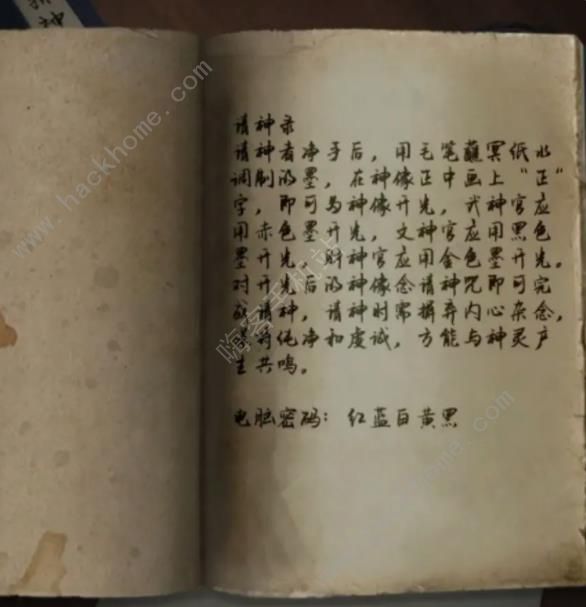 请神录
请神者净手后，用毛笔蘸冥纸水
调制的墨，在神像正中画上“正”
字，即可为神像开光，武神官应
用赤色墨开光，文神官应用黑色
墨开光，财神官应用金色墨开光。
对开光后的神像念请神咒即可完
成请神，请神时需摒弃内心杂念，
保持纯净和虔诚，方能与神灵产
生共鸣。
电脑密码：红蓝白黄黑
www.hackhome.com
嗨客手机站
www.hackhome.com